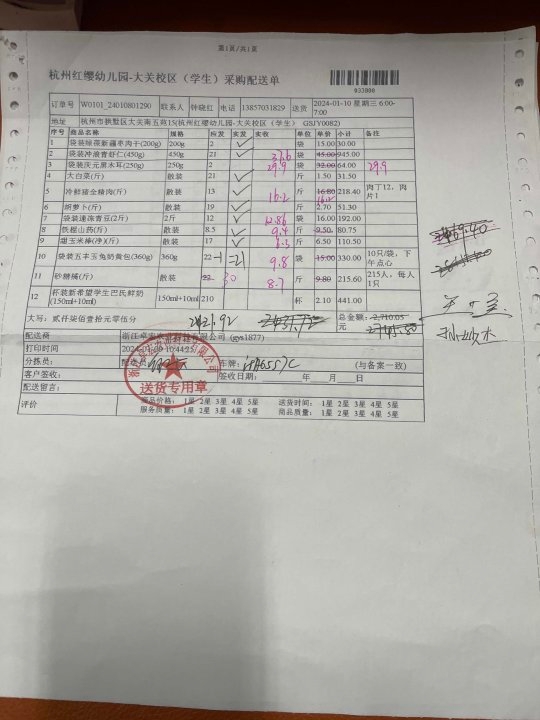 第1页/共1页
杭州红缨幼儿园-大关校区（学生）采购配送单
033800
订单号 W0101_24010801290 联系人 钟晓红 电话 13857031829 送货 2024-01-10 星期三 6:00-7:00
地址 杭州市拱墅区大关南五苑15(杭州红缨幼儿园-大关校区（学生） GSJY0082)
序号 商品名称 规格 应发 实发 实收 单位 单价 小计 备注
1 袋装楼葆新疆枣肉干(200g) 200g 2 ✓ 袋 15.00 30.00
2 袋装冲浪青虾仁(450g) 450g 21 ✓ 37.6 袋 45.00 945.00
3 袋装庆元黑木耳(250g) 250g 2 29.9 袋 32.00 64.00 29.9
4 大白菜(斤) 散装 21 ✓ 斤 1.50 31.50
5 冷鲜猪全精肉(斤) 散装 13 ✓ 16.2 斤 16.80 16.2 218.40 肉丁12，肉片1
6 胡萝卜(斤) 散装 19 ✓ 斤 2.70 51.30
7 袋装速冻青豆(2斤) 2斤 12 ✓ 12.86 袋 16.00 192.00
8 铁棍山药(斤) 散装 8.5 ✓ 9.4 斤 9.50 80.75
9 甜玉米棒(净)(斤) 散装 17 ✓ 6.3 斤 6.50 110.50
10 袋装五丰玉兔奶黄包(360g) 360g 22 -1 =21 9.8 袋 15.00 330.00 10只/袋，下午点心
11 砂糖橘(斤) 散装 22 30 8.7 斤 9.80 215.60 215人，每人1只
12 杯装新希望学生巴氏鲜奶(150ml+10ml) 150ml+10ml 210 杯 2.10 441.00
大写：贰仟柒佰壹拾元零伍分 2421.92 总金额：2,710.05元
配送商 浙江 有限公司 (gys1877)
打印时间 2024-01-09 10:44:23
分拣员： 配送员： 车牌： (与备案一致)
客户签收： 签收日期： 年 月 日
配送留言：
送货专用章
评价 商品价格： 1星 2星 3星 4星 5星 送货时间： 1星 2星 3星 4星 5星
服务质量： 1星 2星 3星 4星 5星 商品质量： 1星 2星 3星 4星 5星